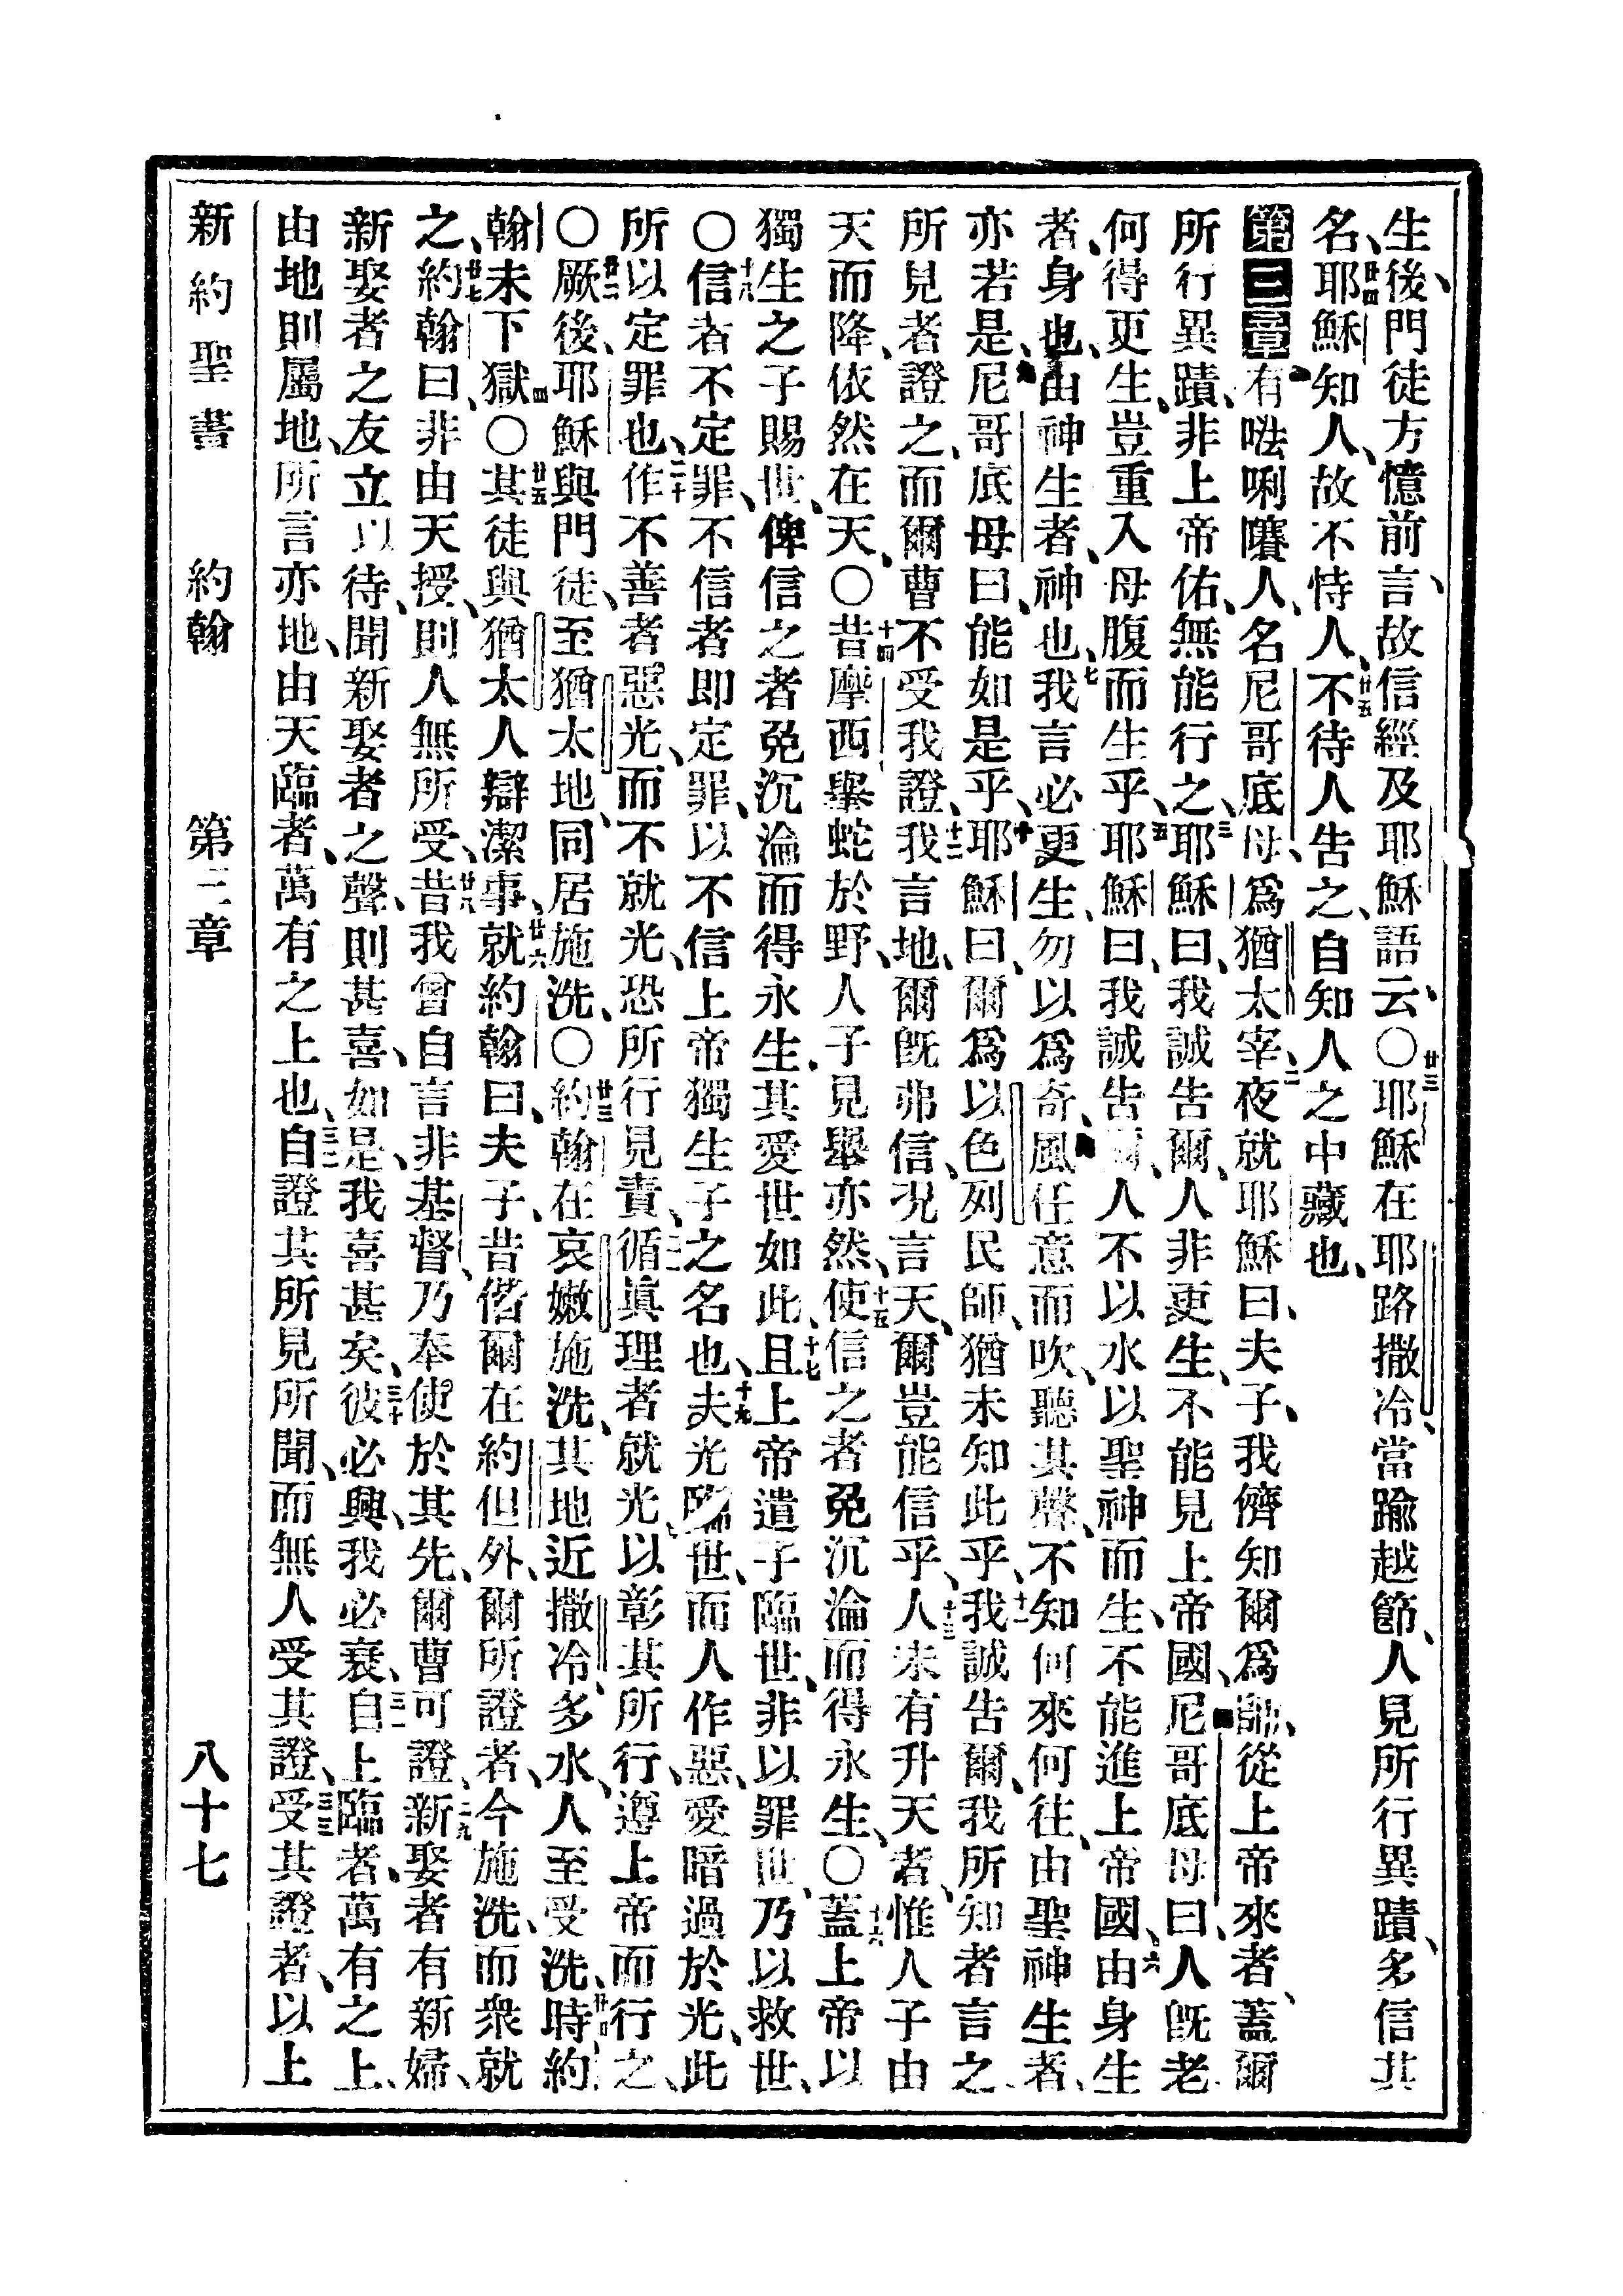 生、後門徒方憶前言、故信經及耶穌語云、〇廿三耶穌在耶路撒冷、當踰越節、人見所行異蹟、多信其
名、廿四耶穌知人、故不恃人、廿五不待人告之、自知人之中藏也、
第三章 有𠵽唎㘔人、名尼哥底母、爲猶太宰、二夜就耶穌曰、夫子、我儕知爾爲師、從上帝來者、蓋爾
所行異蹟、非上帝佑、無能行之、三耶穌曰、我誠告爾、人非更生、不能見上帝國、尼哥底母曰、人旣老
何得更生、豈重入母腹而生乎、五耶穌曰、我誠告爾、人不以水以聖神而生、不能進上帝國、六由身生
者、身也、由神生者、神也、七我言必更生、勿以爲奇、風任意而吹、聽其聲、不知何來何往、由聖神生者、
亦若是、尼哥底母曰、能如是乎、十耶穌曰、爾爲以色列民師、猶未知此乎、十一我誠告爾、我所知者言之
所見者證之、而爾曹不受我證、十二我言地、爾旣弗信、況言天、爾豈能信乎、十三人未有升天者、惟人子由
天而降、依然在天、〇十四昔摩西舉蛇於野、人子見舉亦然、十五使信之者免沉淪而得永生、〇十六蓋上帝以
獨生之子賜世、俾信之者免沉淪而得永生、其愛世如此、十七且上帝遣子臨世、非以罪世、乃以救世、
〇十八信者不定罪、不信者即定罪、以不信上帝獨生子之名也、十九夫光臨世、而人作惡、愛暗過於光、此
所以定罪也、二十作不善者惡光、而不就光、恐所行見責、二一循眞理者就光、以彰其所行、遵上帝而行之、
〇廿二厥後、耶穌與門徒、至猶太地、同居施洗、〇廿三約翰在哀嫩施洗、其地近撒冷、多水、人至受洗、廿四時約
翰未下獄、〇廿五其徒與猶太人辯潔事、廿六就約翰曰、夫子、昔偕爾在約但外、爾所證者、今施洗、而衆就
之、廿七約翰曰、非由天授、則人無所受、廿八昔我曾自言非基督、乃奉使於其先、爾曹可證、二九新娶者有新婦、
新娶者之友立以待、聞新娶者之聲、則甚喜、如是、我喜甚矣、三十彼必興、我必衰、三一自上臨者、萬有之上、
由地則屬地、所言亦地、由天臨者、萬有之上也、三二自證其所見所聞、而無人受其證、三三受其證者、以上
新約聖書 約翰 第三章 八十七